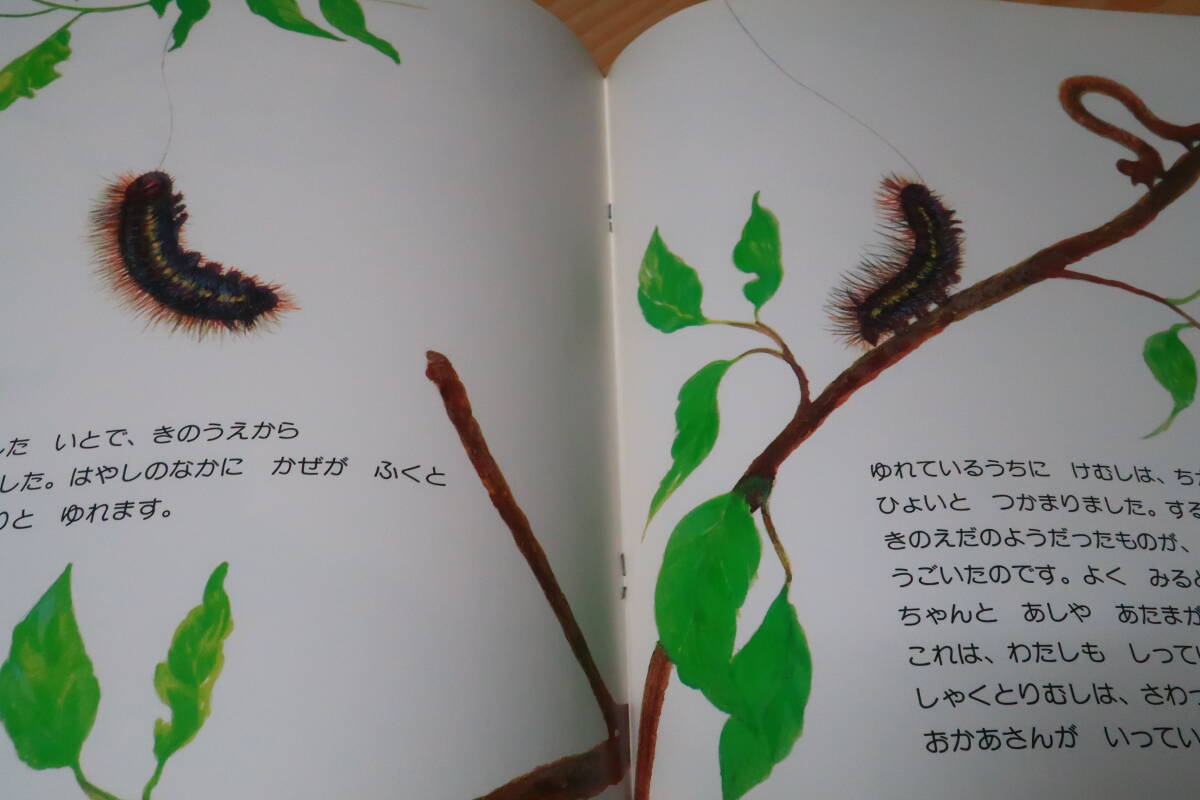 した いとで、きのうえから
した。はやしのなかに かぜが ふくと
りと ゆれます。
ゆれているうちに けむしは、ちか
ひょいと つかまりました。する
きのえだのようだったものが、
うごいたのです。よく みると
ちゃんと あしや あたまが
これは、わたしも しってい
しゃくとりむしは、さわっ
おかあさんが いってい